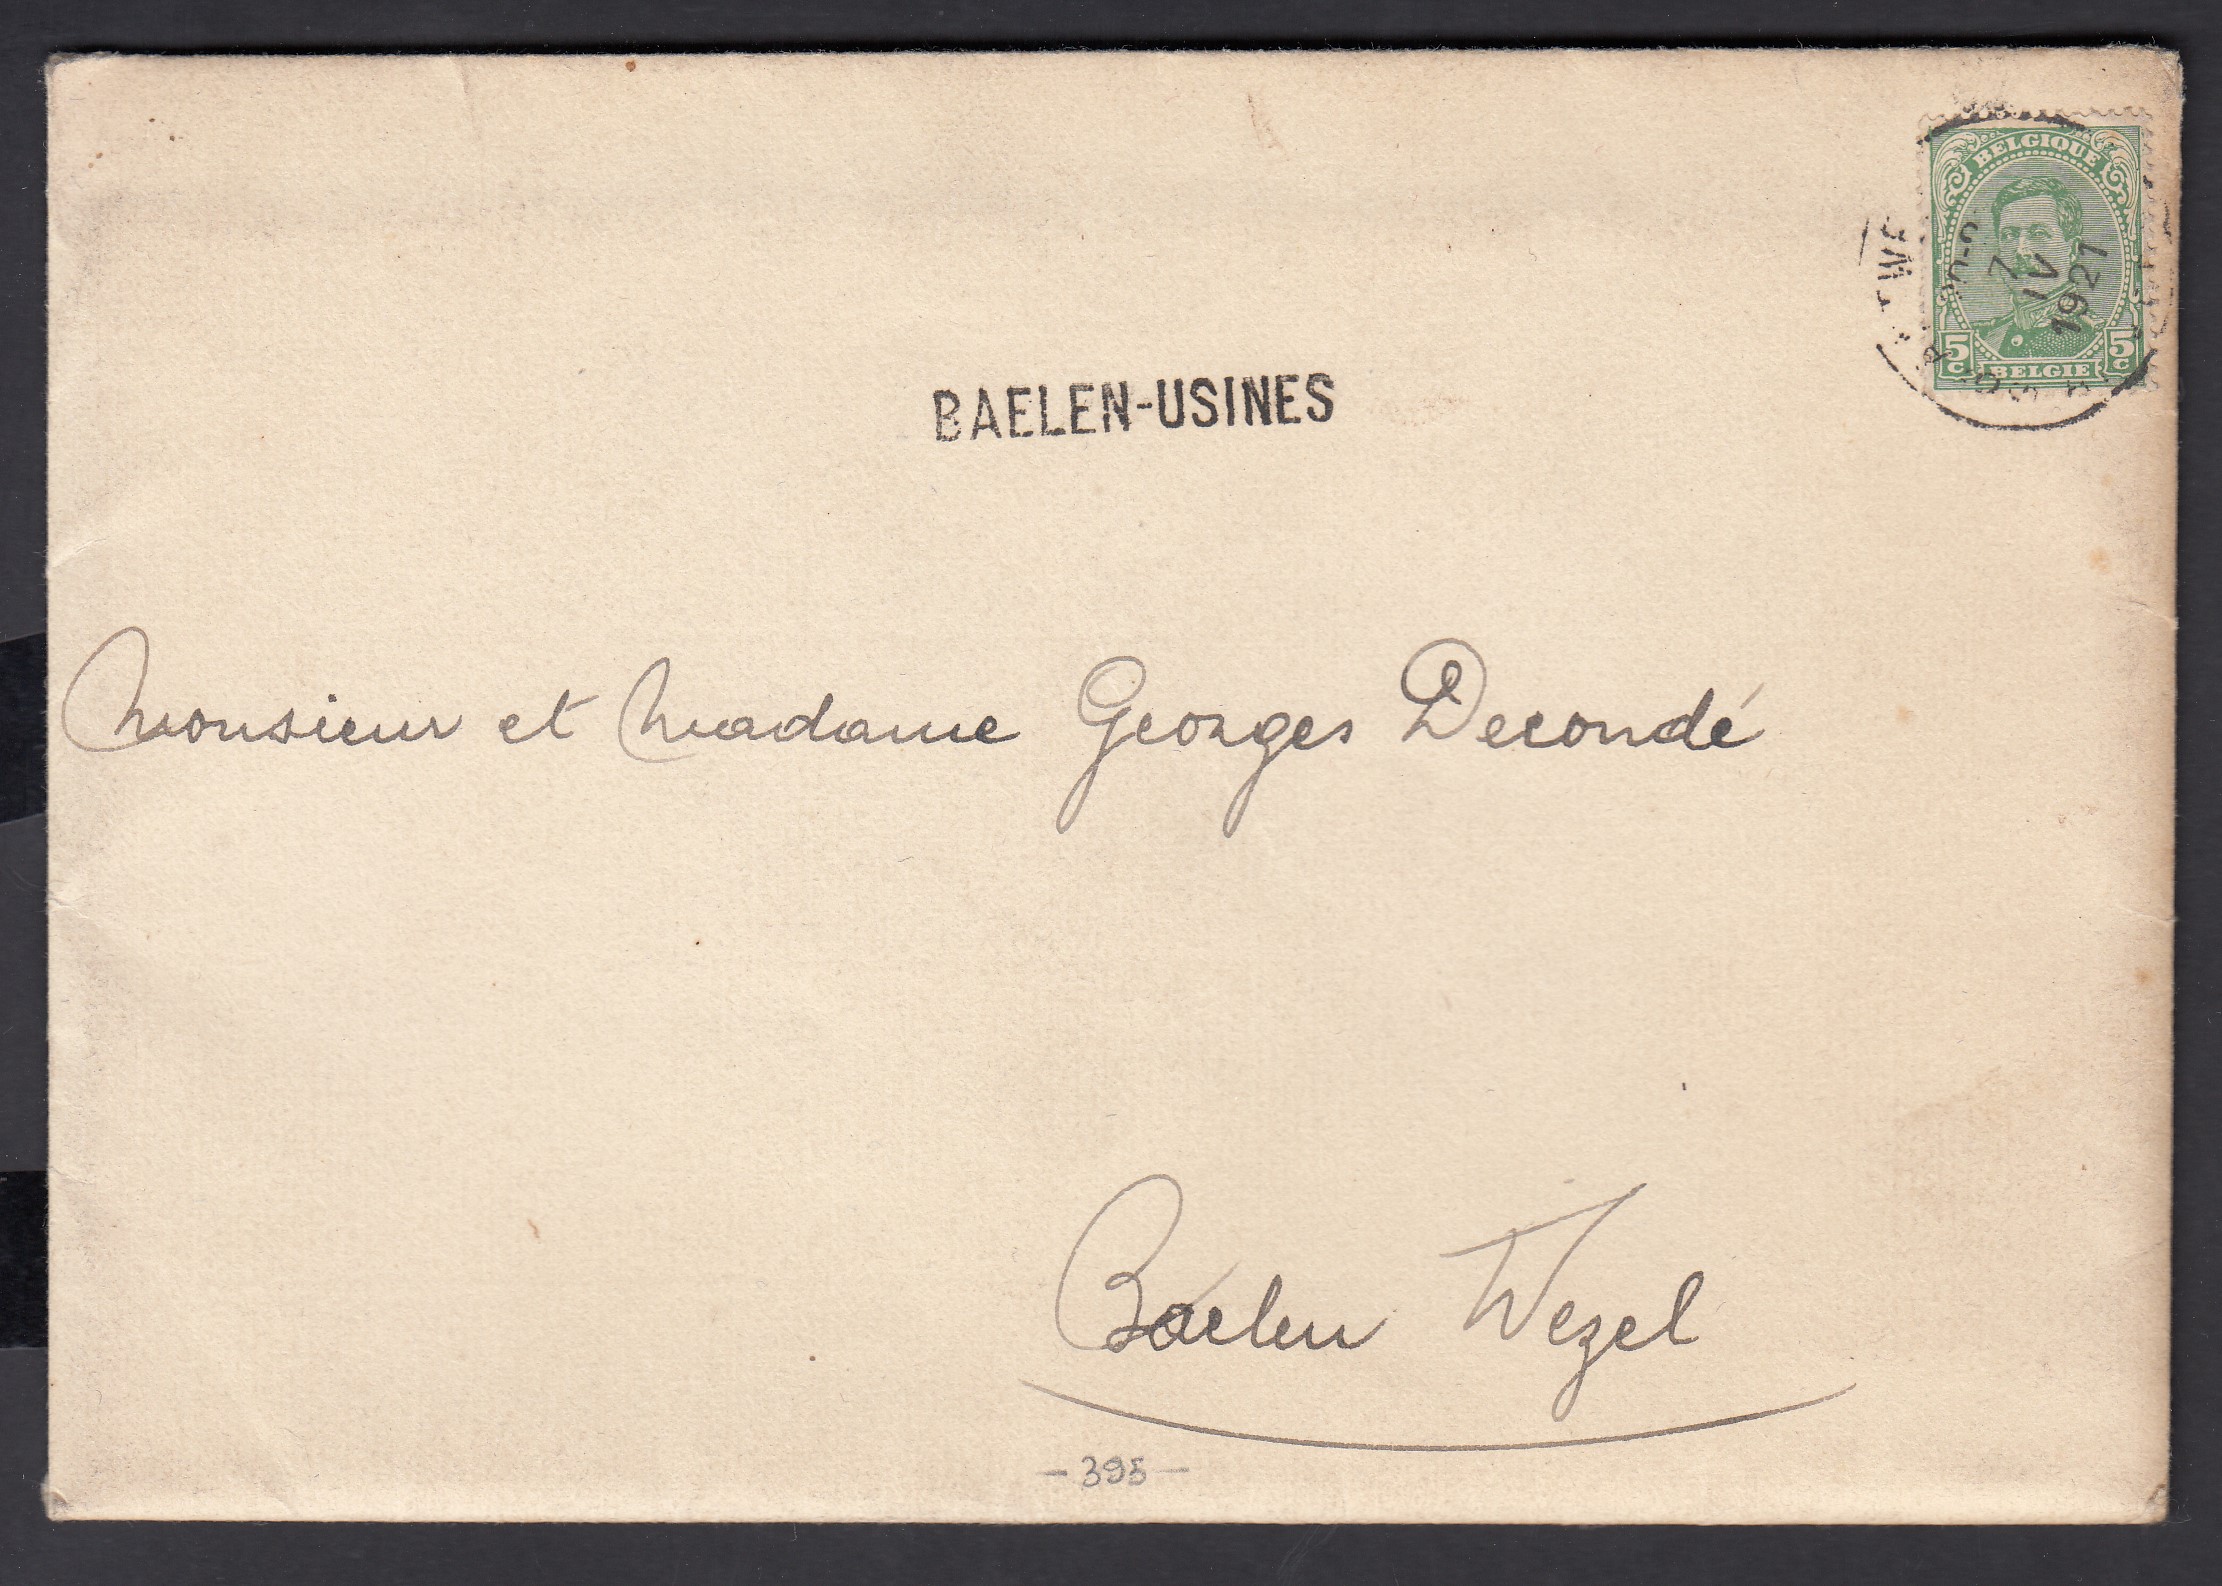 BELGIQUE
7
IV
1921
5 c 5 c
BELGIE
BAELEN-USINES
Monsieur et Madame Georges Decondé
Baelen Wezel
- 395 -